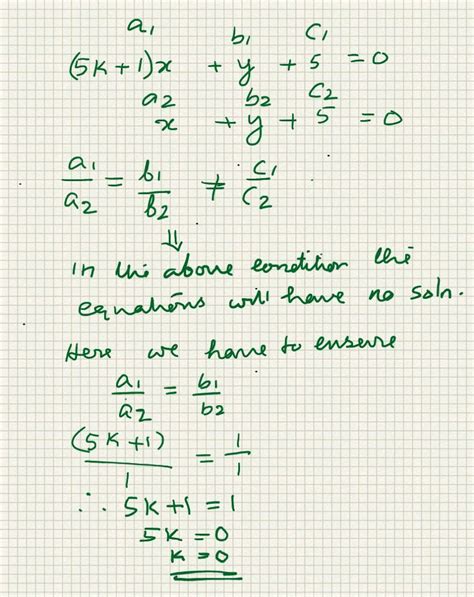 a₁ b₁ c₁
(5k+1)x + y + 5 = 0
a₂ b₂ c₂
x + y + 5 = 0
a₁/a₂ = b₁/b₂ ≠ c₁/c₂
⇓
In the above condition the
equations will have no soln.
Here we have to ensure
a₁/a₂ = b₁/b₂
(5k+1)/1 = 1/1
∴ 5k+1 = 1
5k = 0
k = 0